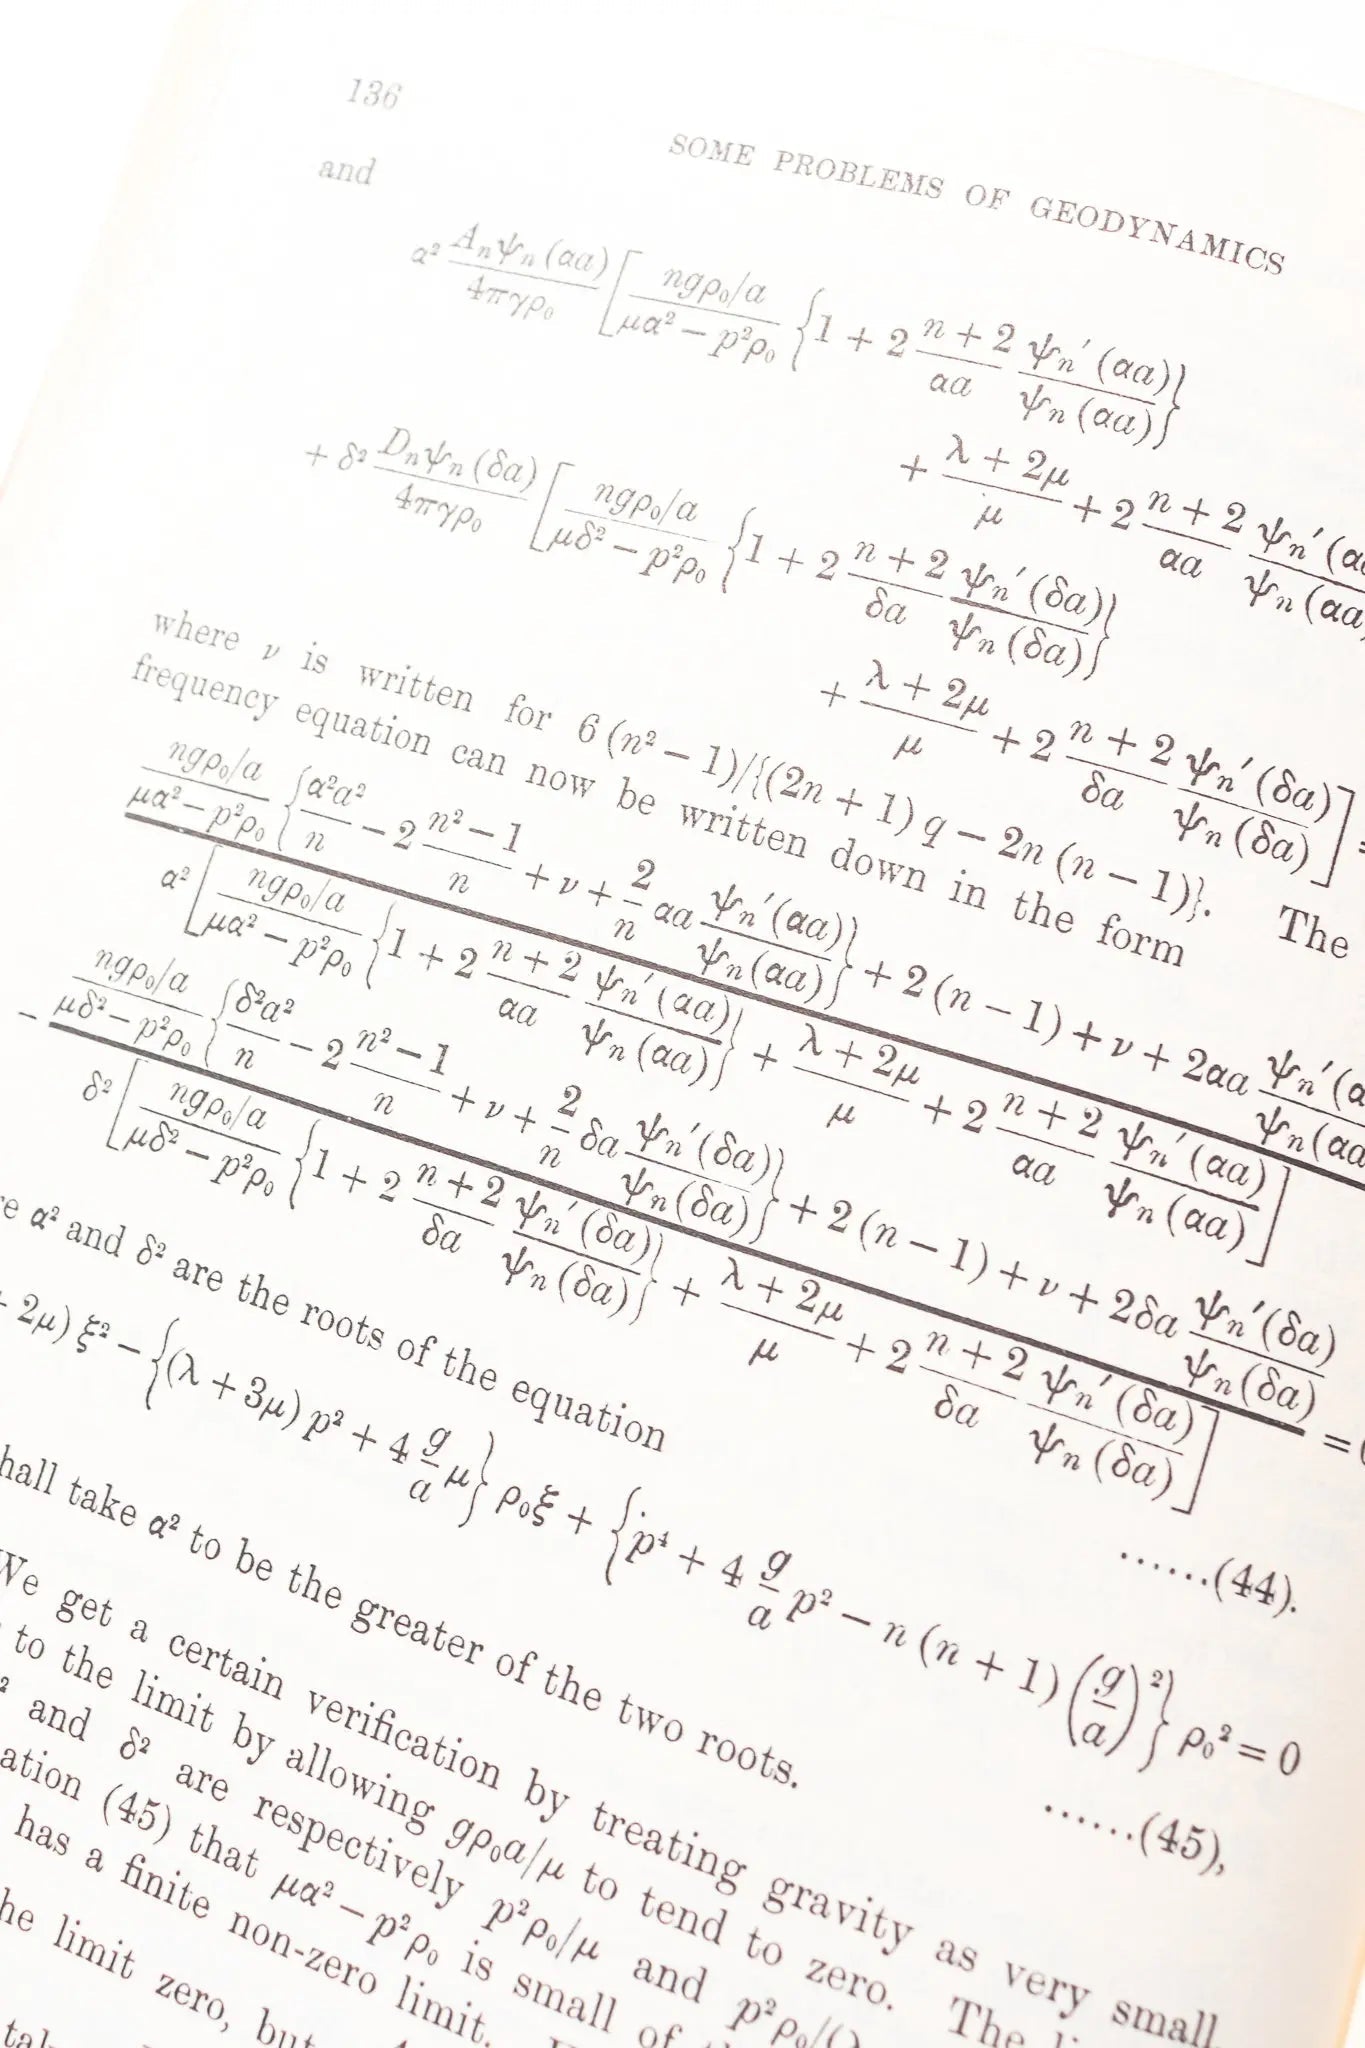 136
SOME PROBLEMS OF GEODYNAMICS
and
α² Aₙψₙ(αa)/4πγρ₀ [ (ngρ₀/a)/(μα² − p²ρ₀) {1 + 2 (n + 2)/αa ψₙ′(αa)/ψₙ(αa)}
+ (λ + 2μ)/μ + 2 (n + 2)/αa ψₙ′(αa)/ψₙ(αa
+ δ² Dₙψₙ(δa)/4πγρ₀ [ (ngρ₀/a)/(μδ² − p²ρ₀) {1 + 2 (n + 2)/δa ψₙ′(δa)/ψₙ(δa)}
+ (λ + 2μ)/μ + 2 (n + 2)/δa ψₙ′(δa)/ψₙ(δa) ] =
where ν is written for 6 (n² − 1)/{(2n + 1) q − 2n (n − 1)}. The
frequency equation can now be written down in the form
(ngρ₀/a)/(μα² − p²ρ₀) {α²a²/n − 2 (n² − 1)/n + ν + 2/n αa ψₙ′(αa)/ψₙ(αa)} + 2 (n − 1) + ν + 2αa ψₙ′(αa/ψₙ(αa
α² [ (ngρ₀/a)/(μα² − p²ρ₀) {1 + 2 (n + 2)/αa ψₙ′(αa)/ψₙ(αa)} + (λ + 2μ)/μ + 2 (n + 2)/αa ψₙ′(αa)/ψₙ(αa) ]
− (ngρ₀/a)/(μδ² − p²ρ₀) {δ²a²/n − 2 (n² − 1)/n + ν + 2/n δa ψₙ′(δa)/ψₙ(δa)} + 2 (n − 1) + ν + 2δa ψₙ′(δa)/ψₙ(δa)
δ² [ (ngρ₀/a)/(μδ² − p²ρ₀) {1 + 2 (n + 2)/δa ψₙ′(δa)/ψₙ(δa)} + (λ + 2μ)/μ + 2 (n + 2)/δa ψₙ′(δa)/ψₙ(δa) ] =
......(44).
re α² and δ² are the roots of the equation
+ 2μ) ξ² − {(λ + 3μ) p² + 4 g/a μ} ρ₀ξ + {p⁴ + 4 g/a p² − n (n + 1) (g/a)²} ρ₀² = 0
......(45),
hall take α² to be the greater of the two roots.
We get a certain verification by treating gravity as very small,
to the limit by allowing gρ₀a/μ to tend to zero. The
² and δ² are respectively p²ρ₀/μ and p²ρ₀/(
ation (45) that μα² − p²ρ₀ is small of
has a finite non-zero limit.
he limit zero, but
tak